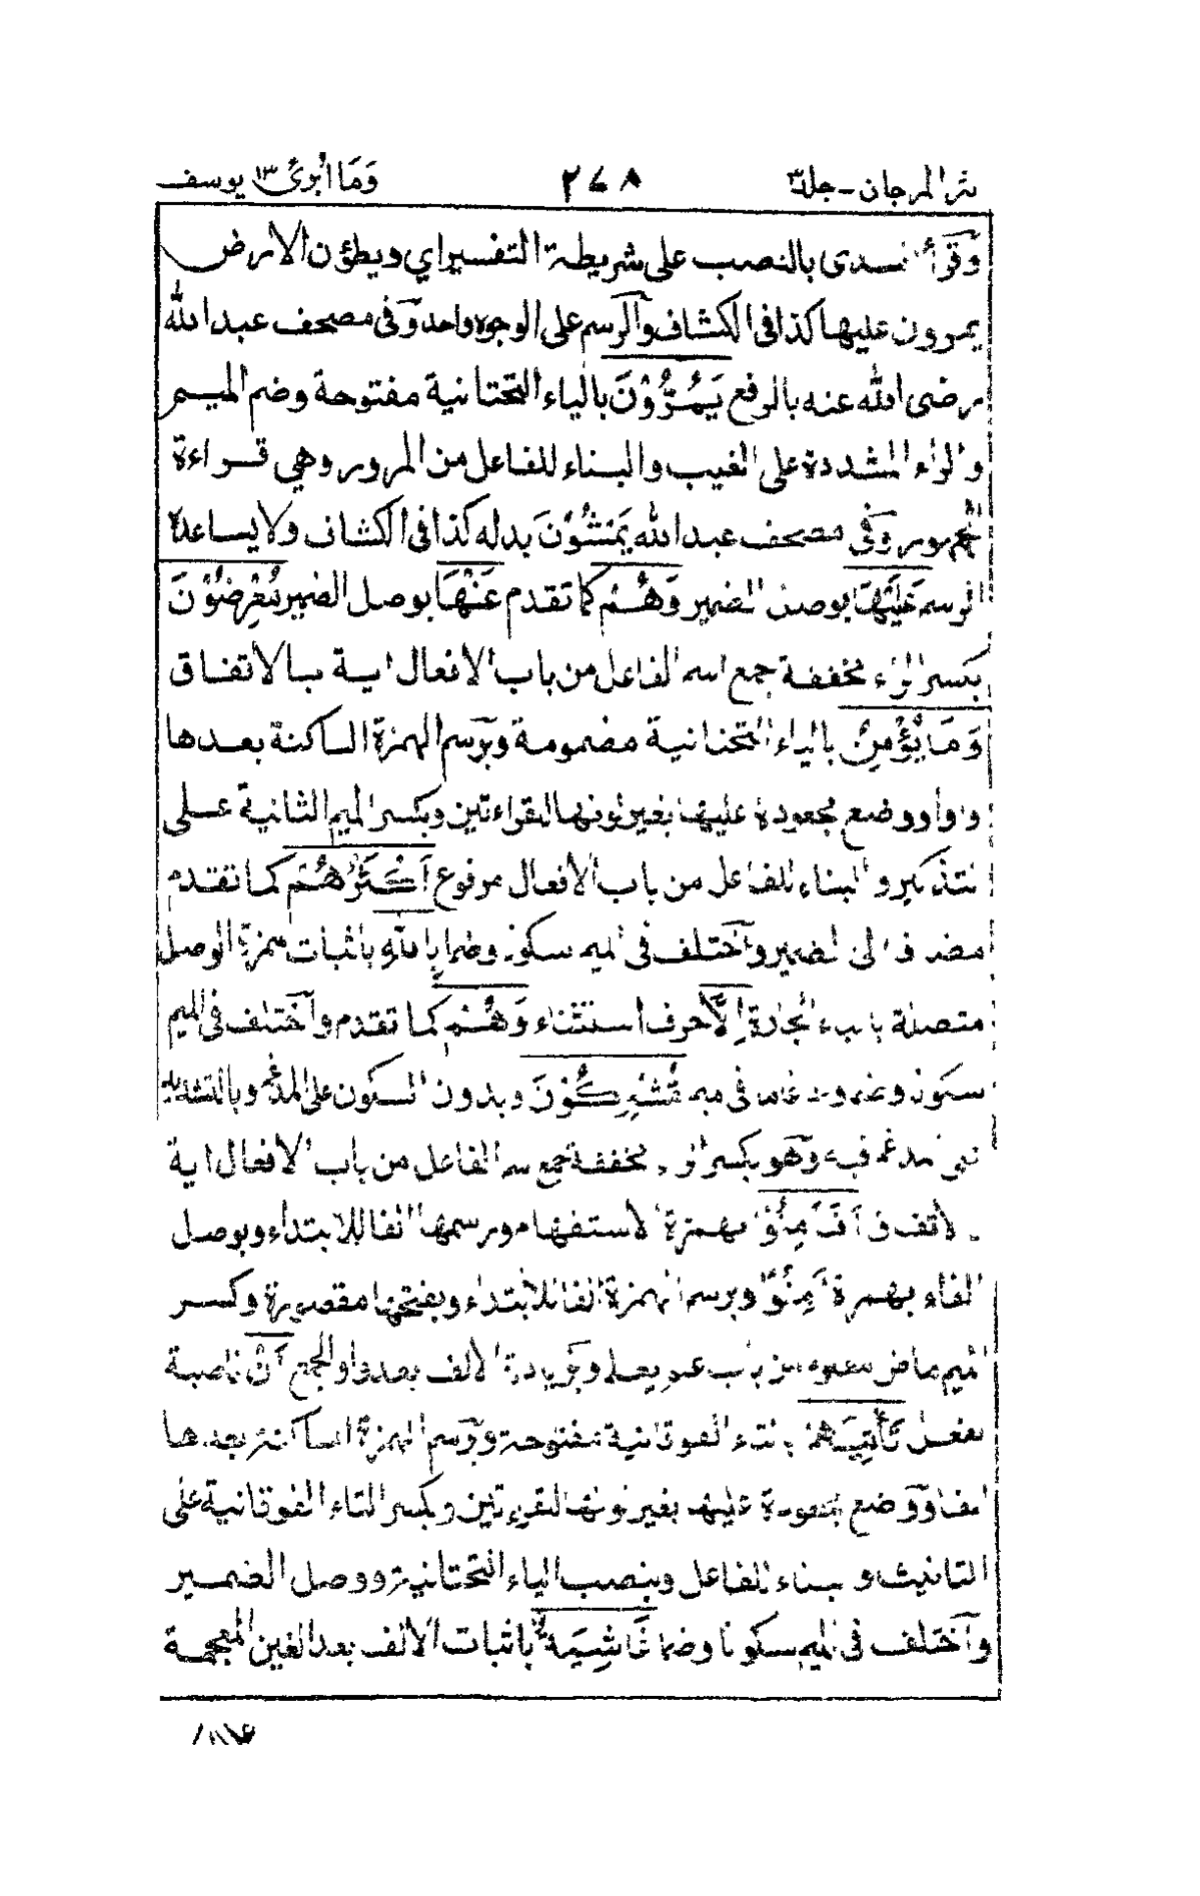 نثر المرجان - جلد ٣ ٢٧٨ وَمَا أُبَرِّئُ ١٣ يوسف
وقرأ السدى بالنصب على شريطة التفسير اي ويطؤن الارض
يمرون عليها كذا فى الكشاف والرسم على الوجوه واحد وفى مصحف عبد الله
رضى الله عنه بالرفع يَمُرُّوْنَ بالياء التحتانية مفتوحة وضم الميم
والراء المشددة على الغيب والبناء للفاعل من المرور وهي قراءة
الجمهور وفى مصحف عبد الله يَمْشُوْنَ بدله كذا فى الكشاف ولا يساعده
الرسم عَلَيْهَا بوصل الضمير وَهُمْ كما تقدم عَنْهَا بوصل الضمير مُعْرِضُوْنَ
بكسر الراء مخففة جمع اسم الفاعل من باب الافعال اية بالاتفاق
وَمَا يُؤْمِنُ بالياء التحتانية مضمومة وبرسم الهمزة الساكنة بعدها
واوا ووضع مجعودة عليها بغير لونها للقراءتين وبكسر الميم الثانية على
التذكير والبناء للفاعل من باب الافعال مرفوع اَكْثَرُهُمْ كما تقدم
مضافا الى الضمير واختلف فى الميم سكونا وضما بِاللهِ باثبات همزة الوصل
متصلة بالباء الجارة اِلَّا حرف استثناء وَهُمْ كما تقدم واختلف فى الميم
سكونا وضما وادغاما فى ميم مُّشْرِكُوْنَ وبدون السكون على المدغم وبالتشديد
على المدغم فيه وهو بكسر الراء مخففة جمع اسم الفاعل من باب الافعال اية
بالاتفاق اَفَاَمِنُوْا بهمزة الاستفهام ورسمها الفا للابتداء وبوصل
الفاء بهمزة اَمِنُوْا وبرسم الهمزة الفا للابتداء وبفتحها مقصورة وكسر
الميم ماض معلوم من باب علم يعلم وبزيادة الالف بعد واو الجمع اَنْ ناصبة
للفعل تَأْتِيَهُمْ بالتاء الفوقانية مفتوحة وبرسم الهمزة الساكنة بعدها
الفا ووضع مجعودة عليها بغير لونها للقراءتين وبكسر التاء الفوقانية على
التانيث وبناء للفاعل وبنصب الياء التحتانية ووصل الضمير
واختلف فى الميم سكونا وضما غَاشِيَةٌ باثبات الالف بعد الغين المعجمة